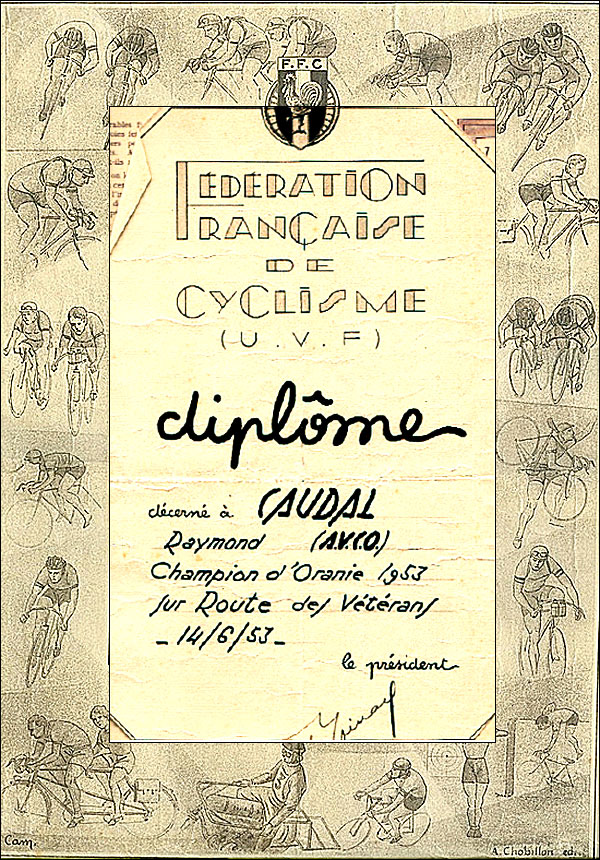 F.F.C
FÉDÉRATION
FRANÇAISE
DE
CYCLISME
(U.V.F)
diplôme
décerné à CAUDAL
Raymond (A.V.C.O.)
Champion d'Oranie 1953
sur Route des Vétérans
- 14/6/53 -
le président
Cam.
A. Chobillon